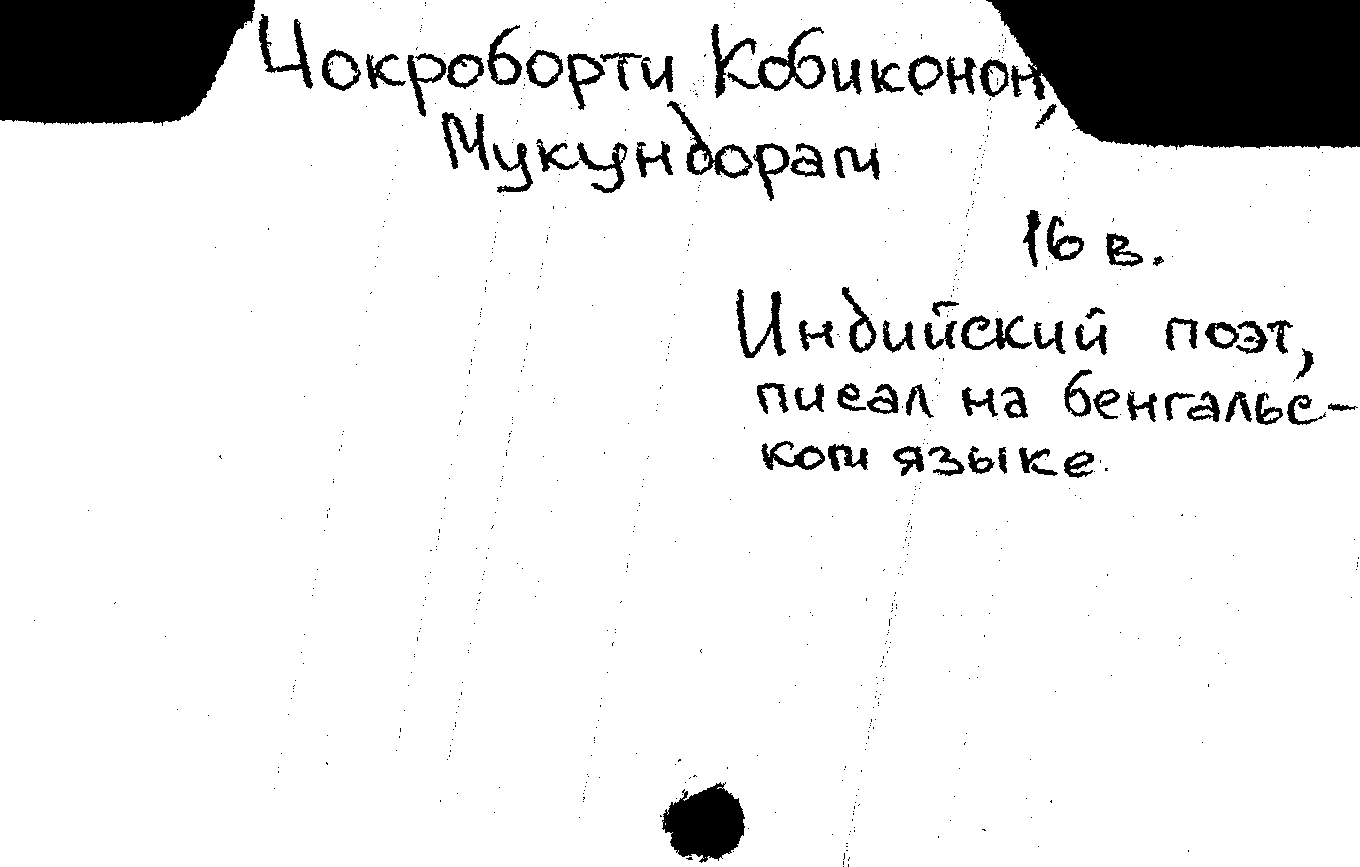 Чокроборти Кобиконон,
Мукундорам
16 в.
Индийский поэт,
писал на бенгальс-
ком языке.